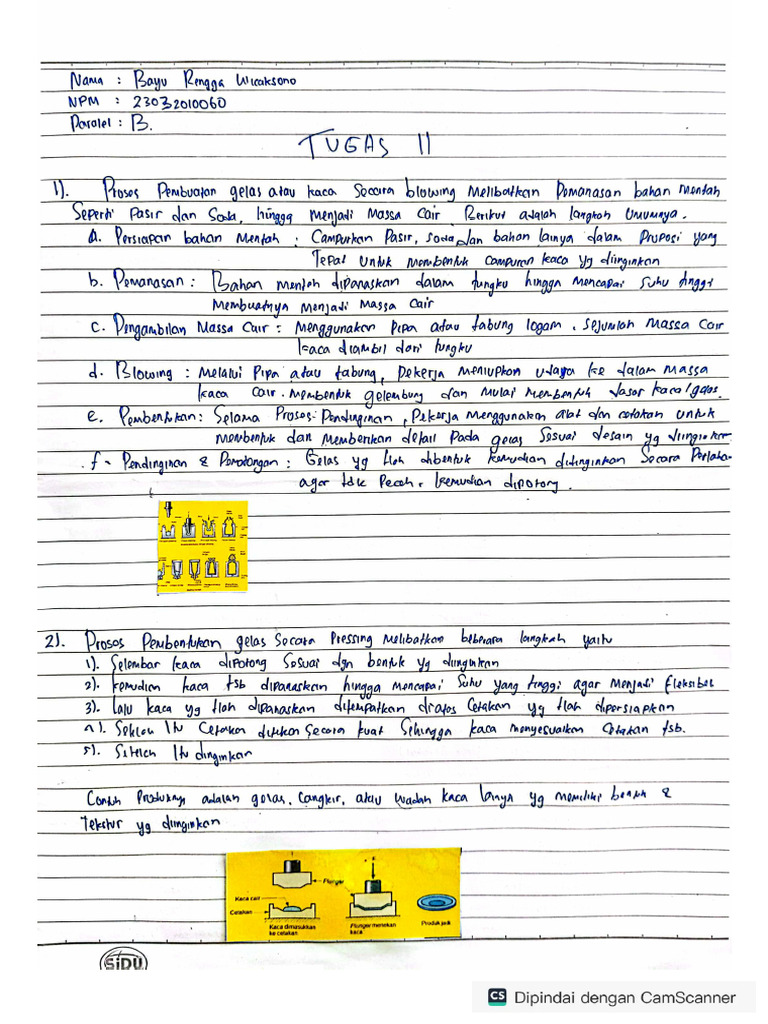 Nama : Bayu Rengga Wicaksono
NPM : 23032010060
Paralel : B.
TUGAS 11
1). Proses Pembuatan gelas atau kaca Secara blowing Melibatkan Pemanasan bahan mentah
Seperti Pasir dan Soda, hingga Menjadi Massa Cair. Berikut adalah langkah Umumnya.
a. Persiapan bahan Mentah : Campurkan Pasir, soda, dan bahan lainya dalam Proposi yang
Tepat untuk membentuk campuran kaca yg diinginkan
b. Pemanasan : Bahan mentah dipanaskan dalam tungku hingga mencapai Suhu tinggi
Membuatnya Menjadi Massa Cair
c. Pengambilan Massa Cair : Menggunakan Pipa atau tabung logam, Sejumlah Massa Cair
kaca diambil dari tungku
d. Blowing : Melalui Pipa atau tabung, Pekerja meniupkan udara ke dalam Massa
kaca cair. Membentuk gelembung dan Mulai Membentuk dasar kaca/gelas.
e. Pembentukan : Selama Proses Pendinginan, Pekerja Menggunakan alat dan cetakan untuk
membentuk dan Memberikan detail Pada gelas Sesuai desain yg diinginkan
f. Pendinginan & Pemotongan : Gelas yg tlah dibentuk kemudian didinginkan Secara Perlahan
agar tdk Pecah, kemudian dipotong.
2). Proses Pembentukan gelas Secara Pressing Melibatkan beberapa langkah yaitu
1). Selembar kaca dipotong Sesuai dgn bentuk yg diinginkan
2). kemudian kaca tsb dipanaskan hingga Mencapai Suhu yang tinggi agar Menjadi fleksibel
3). Lalu kaca yg tlah dipanaskan ditempatkan diatas Cetakan yg tlah dipersiapkan
4). Setelah Itu Cetakan ditekan Secara kuat Sehingga kaca menyesuaikan Cetakan tsb.
5). Setelah Itu dinginkan
Contoh Produknya adalah gelas, Cangkir, atau wadah kaca lainya yg memiliki bentuk &
Tekstur yg diinginkan
Plunger
Kaca cair
Cetakan
Kaca dimasukkan ke cetakan
Plunger menekan kaca
Produk jadi
SiDU
CS Dipindai dengan CamScanner